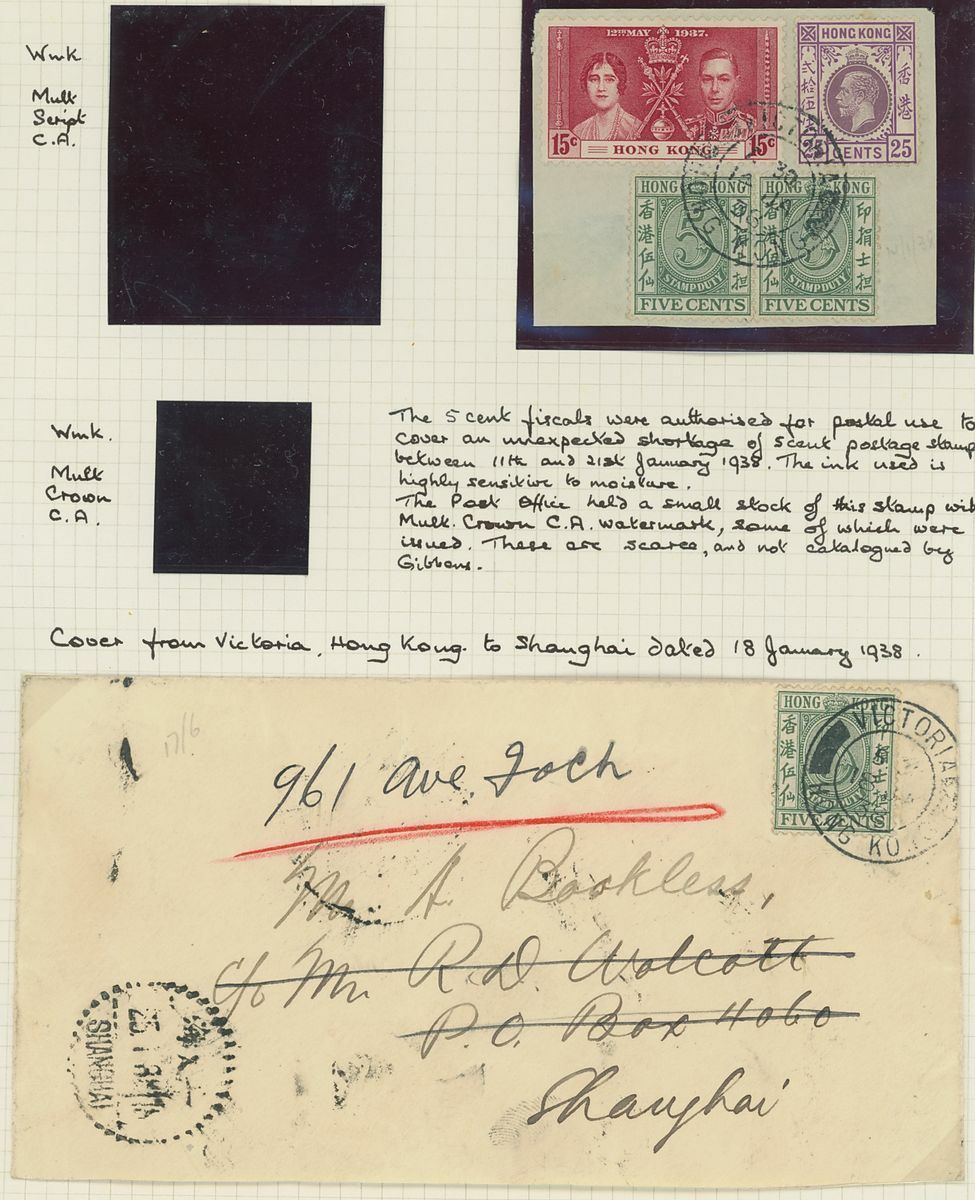 Wmk
Mult
Script
C.A.
12TH MAY 1937.
15c 15c
HONG KONG
HONG KONG
貳拾五
香港
25 CENTS 25
VICTORIA
HONG KONG
HONG KONG
香港伍仙
印捐士担
5
STAMP DUTY
FIVE CENTS
HONG KONG
香港伍仙
印捐士担
STAMP DUTY
FIVE CENTS
Wmk.
Mult
Crown
C.A.
The 5 cent fiscals were authorised for postal use to
cover an unexpected shortage of 5cent postage stamp
between 11th and 21st January 1938. The ink used is
highly sensitive to moisture.
The Post Office held a small stock of this stamp with
Mult. Crown C.A. watermark, some of which were
issued. These are scarce, and not catalogued by
Gibbons.
Cover from Victoria, Hong Kong. to Shanghai dated 18 January 1938.
17/6
HONG KONG
香港伍仙
捐士担
STAMP DUTY
FIVE CENTS
VICTORIA
HONG KO
961 Ave. Foch
Mr. A. Bookless,
c/o Mr. R.D. Wolcott
P.O. Box 4060
Shanghai
SHANGHAI